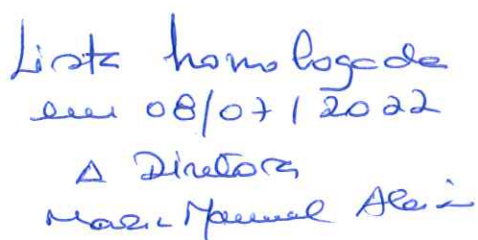 Lista homologada
em 08/07/2022
A Diretora
Maria Manuel